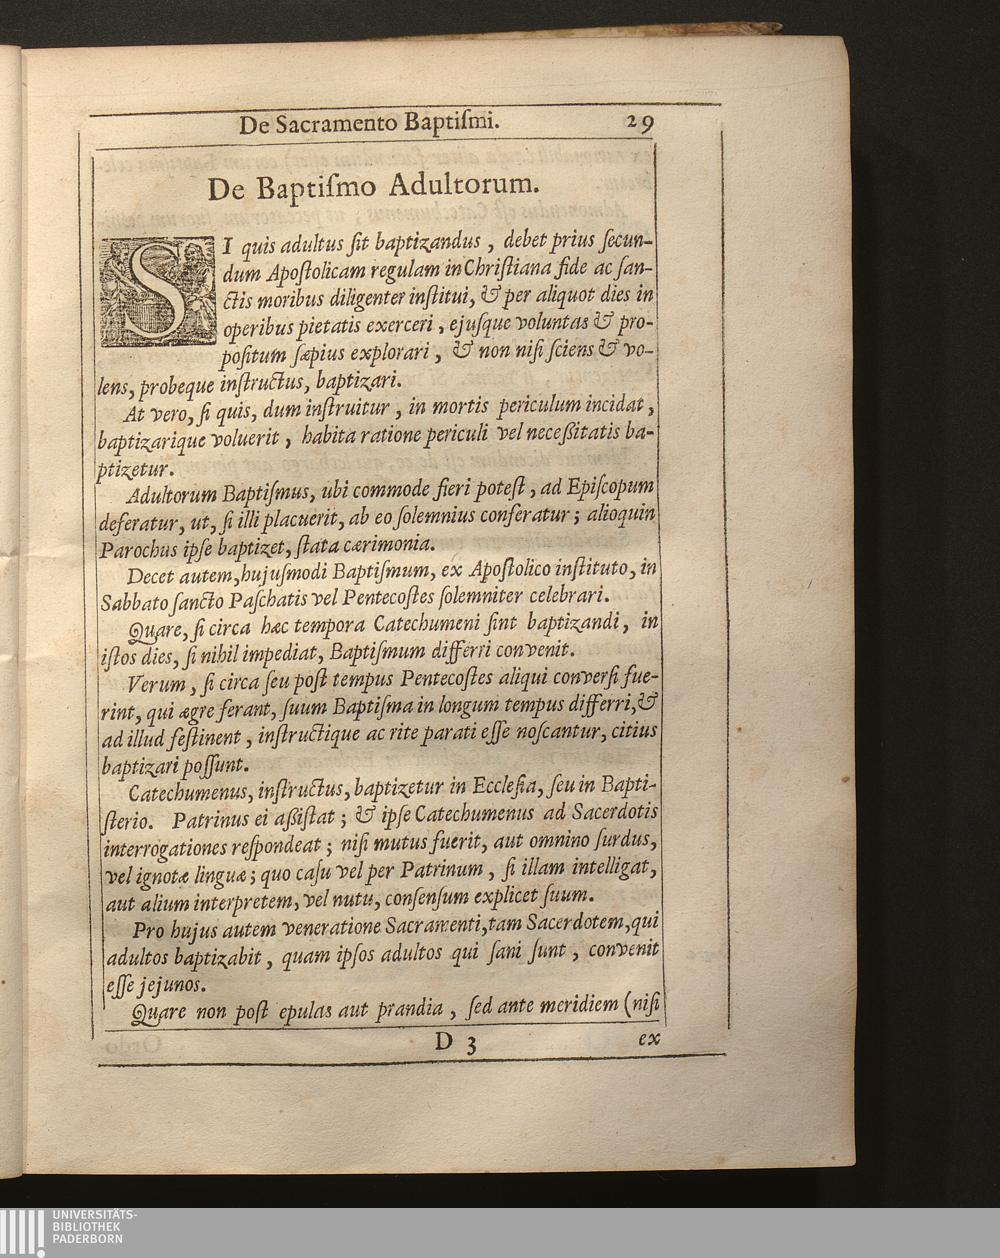 De Sacramento Baptiſmi. 29
De Baptiſmo Adultorum.
SI quis adultus ſit baptizandus, debet prius ſecun-
dum Apoſtolicam regulam in Chriſtiana fide ac ſan-
ctis moribus diligenter inſtitui, & per aliquot dies in
operibus pietatis exerceri, ejuſque voluntas & pro-
poſitum ſæpius explorari, & non niſi ſciens & vo-
lens, probeque inſtructus, baptizari.
At vero, ſi quis, dum inſtruitur, in mortis periculum incidat,
baptizarique voluerit, habita ratione periculi vel neceßitatis ba-
ptizetur.
Adultorum Baptiſmus, ubi commode fieri poteſt, ad Epiſcopum
deferatur, ut, ſi illi placuerit, ab eo ſolemnius conferatur; alioquin
Parochus ipſe baptizet, ſtata cærimonia.
Decet autem, hujuſmodi Baptiſmum, ex Apoſtolico inſtituto, in
Sabbato ſancto Paſchatis vel Pentecoſtes ſolemniter celebrari.
Quare, ſi circa hæc tempora Catechumeni ſint baptizandi, in
iſtos dies, ſi nihil impediat, Baptiſmum differri convenit.
Verum, ſi circa ſeu poſt tempus Pentecoſtes aliqui converſi fue-
rint, qui ægre ferant, ſuum Baptiſma in longum tempus differri, &
ad illud feſtinent, inſtructique ac rite parati eſſe noſcantur, citius
baptizari poſſunt.
Catechumenus, inſtructus, baptizetur in Eccleſia, ſeu in Bapti-
ſterio. Patrinus ei aßiſtat; & ipſe Catechumenus ad Sacerdotis
interrogationes reſpondeat; niſi mutus fuerit, aut omnino ſurdus,
vel ignotæ linguæ; quo caſu vel per Patrinum, ſi illam intelligat,
aut alium interpretem, vel nutu, conſenſum explicet ſuum.
Pro hujus autem veneratione Sacramenti, tam Sacerdotem, qui
adultos baptizabit, quam ipſos adultos qui ſani ſunt, convenit
eſſe jejunos.
Quare non poſt epulas aut prandia, ſed ante meridiem (niſi
D 3 ex
UNIVERSITÄTS-
BIBLIOTHEK
PADERBORN